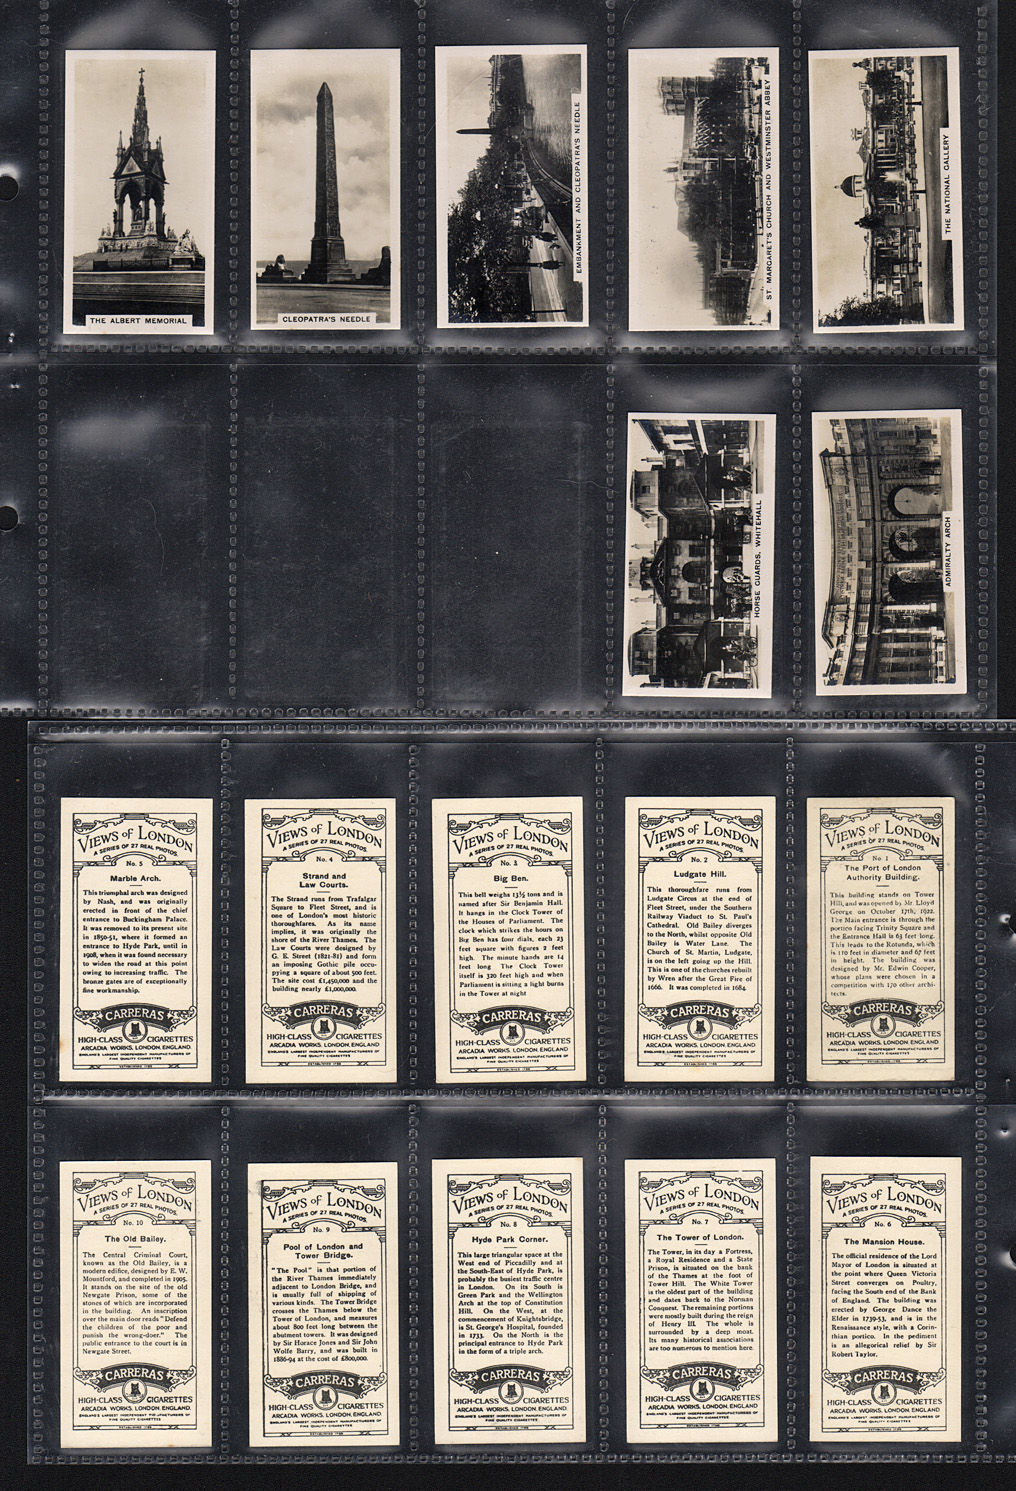 THE ALBERT MEMORIAL
CLEOPATRA'S NEEDLE
EMBANKMENT AND CLEOPATRA'S NEEDLE
ST. MARGARET'S CHURCH AND WESTMINSTER ABBEY
THE NATIONAL GALLERY
HORSE GUARDS, WHITEHALL
ADMIRALTY ARCH
VIEWS of LONDON
A SERIES OF 27 REAL PHOTOS.
No. 5
Marble Arch.
This triumphal arch was designed
by Nash, and was originally
erected in front of the chief
entrance to Buckingham Palace.
It was removed to its present site
in 1850-51, where it formed an
entrance to Hyde Park, until in
1908, when it was found necessary
to widen the road at this point
owing to increasing traffic. The
bronze gates are of exceptionally
fine workmanship.
CARRERAS
HIGH-CLASS CIGARETTES
ARCADIA WORKS, LONDON, ENGLAND.
ENGLAND'S LARGEST INDEPENDENT MANUFACTURERS OF
FINE QUALITY CIGARETTES
ESTABLISHED 1788
VIEWS of LONDON
A SERIES OF 27 REAL PHOTOS.
No. 4
Strand and
Law Courts.
The Strand runs from Trafalgar
Square to Fleet Street, and is
one of London's most historic
thoroughfares. As its name
implies, it was originally the
shore of the River Thames. The
Law Courts were designed by
G. E. Street (1821-81) and form
an imposing Gothic pile occu-
pying a square of about 500 feet.
The site cost £1,450,000 and the
building nearly £1,000,000.
CARRERAS
HIGH-CLASS CIGARETTES
ARCADIA WORKS, LONDON, ENGLAND.
ENGLAND'S LARGEST INDEPENDENT MANUFACTURERS OF
FINE QUALITY CIGARETTES
ESTABLISHED 1788
VIEWS of LONDON
A SERIES OF 27 REAL PHOTOS.
No. 3
Big Ben.
This bell weighs 13½ tons and is
named after Sir Benjamin Hall.
It hangs in the Clock Tower of
the Houses of Parliament. The
clock which strikes the hours on
Big Ben has four dials, each 23
feet square with figures 2 feet
high. The minute hands are 14
feet long The Clock Tower
itself is 320 feet high and when
Parliament is sitting a light burns
in the Tower at night
CARRERAS
HIGH-CLASS CIGARETTES
ARCADIA WORKS, LONDON, ENGLAND.
ENGLAND'S LARGEST INDEPENDENT MANUFACTURERS OF
FINE QUALITY CIGARETTES
ESTABLISHED 1788
VIEWS of LONDON
A SERIES OF 27 REAL PHOTOS.
No. 2
Ludgate Hill.
This thoroughfare runs from
Ludgate Circus at the end of
Fleet Street, under the Southern
Railway Viaduct to St. Paul's
Cathedral. Old Bailey diverges
to the North, whilst opposite Old
Bailey is Water Lane. The
Church of St. Martin, Ludgate,
is on the left going up the Hill.
This is one of the churches rebuilt
by Wren after the Great Fire of
1666. It was completed in 1684.
CARRERAS
HIGH-CLASS CIGARETTES
ARCADIA WORKS, LONDON, ENGLAND.
ENGLAND'S LARGEST INDEPENDENT MANUFACTURERS OF
FINE QUALITY CIGARETTES
ESTABLISHED 1788
VIEWS of LONDON
A SERIES OF 27 REAL PHOTOS.
No 1
The Port of London
Authority Building.
This building stands on Tower
Hill, and was opened by Mr Lloyd
George on October 17th, 1922.
The Main entrance is through the
portico facing Trinity Square and
the Entrance Hall is 63 feet long.
This leads to the Rotunda, which
is 110 feet in diameter and 67 feet
in height. The building was
designed by Mr. Edwin Cooper,
whose plans were chosen in a
competition with 170 other archi-
tects.
CARRERAS
HIGH-CLASS CIGARETTES
ARCADIA WORKS, LONDON, ENGLAND.
ENGLAND'S LARGEST INDEPENDENT MANUFACTURERS OF
FINE QUALITY CIGARETTES
ESTABLISHED 1788
VIEWS of LONDON
A SERIES OF 27 REAL PHOTOS.
No. 10
The Old Bailey.
The Central Criminal Court,
known as the Old Bailey, is a
modern edifice, designed by E. W.
Mountford, and completed in 1905.
It stands on the site of the old
Newgate Prison, some of the
stones of which are incorporated
in the building. An inscription
over the main door reads "Defend
the children of the poor and
punish the wrong-door." The
public entrance to the court is in
Newgate Street.
CARRERAS
HIGH-CLASS CIGARETTES
ARCADIA WORKS, LONDON, ENGLAND.
ENGLAND'S LARGEST INDEPENDENT MANUFACTURERS OF
FINE QUALITY CIGARETTES
ESTABLISHED 1788
VIEWS of LONDON
A SERIES OF 27 REAL PHOTOS.
No. 9
Pool of London and
Tower Bridge.
"The Pool" is that portion of
the River Thames immediately
adjacent to London Bridge, and
is usually full of shipping of
various kinds. The Tower Bridge
crosses the Thames below the
Tower of London, and measures
about 800 feet long between the
abutment towers. It was designed
by Sir Horace Jones and Sir John
Wolfe Barry, and was built in
1886-94 at the cost of £800,000.
CARRERAS
HIGH-CLASS CIGARETTES
ARCADIA WORKS, LONDON, ENGLAND.
ENGLAND'S LARGEST INDEPENDENT MANUFACTURERS OF
FINE QUALITY CIGARETTES
ESTABLISHED 1788
VIEWS of LONDON
A SERIES OF 27 REAL PHOTOS.
No. 8
Hyde Park Corner.
This large triangular space at the
West end of Piccadilly and at
the South-East of Hyde Park, is
probably the busiest traffic centre
in London. On its South is
Green Park and the Wellington
Arch at the top of Constitution
Hill. On the West, at the
commencement of Knightsbridge,
is St. George's Hospital, founded
in 1733. On the North is the
principal entrance to Hyde Park
in the form of a triple arch.
CARRERAS
HIGH-CLASS CIGARETTES
ARCADIA WORKS, LONDON, ENGLAND.
ENGLAND'S LARGEST INDEPENDENT MANUFACTURERS OF
FINE QUALITY CIGARETTES
ESTABLISHED 1788
VIEWS of LONDON
A SERIES OF 27 REAL PHOTOS.
No. 7
The Tower of London.
The Tower, in its day a Fortress,
a Royal Residence and a State
Prison, is situated on the bank
of the Thames at the foot of
Tower Hill. The White Tower
is the oldest part of the building
and dates back to the Norman
Conquest. The remaining portions
were mostly built during the reign
of Henry III. The whole is
surrounded by a deep moat.
Its many historical associations
are too numerous to mention here.
CARRERAS
HIGH-CLASS CIGARETTES
ARCADIA WORKS, LONDON, ENGLAND.
ENGLAND'S LARGEST INDEPENDENT MANUFACTURERS OF
FINE QUALITY CIGARETTES
ESTABLISHED 1788
VIEWS of LONDON
A SERIES OF 27 REAL PHOTOS.
No. 6
The Mansion House.
The official residence of the Lord
Mayor of London is situated at
the point where Queen Victoria
Street converges on Poultry,
facing the South end of the Bank
of England. The building was
erected by George Dance the
Elder in 1739-53, and is in the
Renaissance style, with a Corin-
thian portico. In the pediment
is an allegorical relief by Sir
Robert Taylor.
CARRERAS
HIGH-CLASS CIGARETTES
ARCADIA WORKS, LONDON, ENGLAND.
ENGLAND'S LARGEST INDEPENDENT MANUFACTURERS OF
FINE QUALITY CIGARETTES
ESTABLISHED 1788